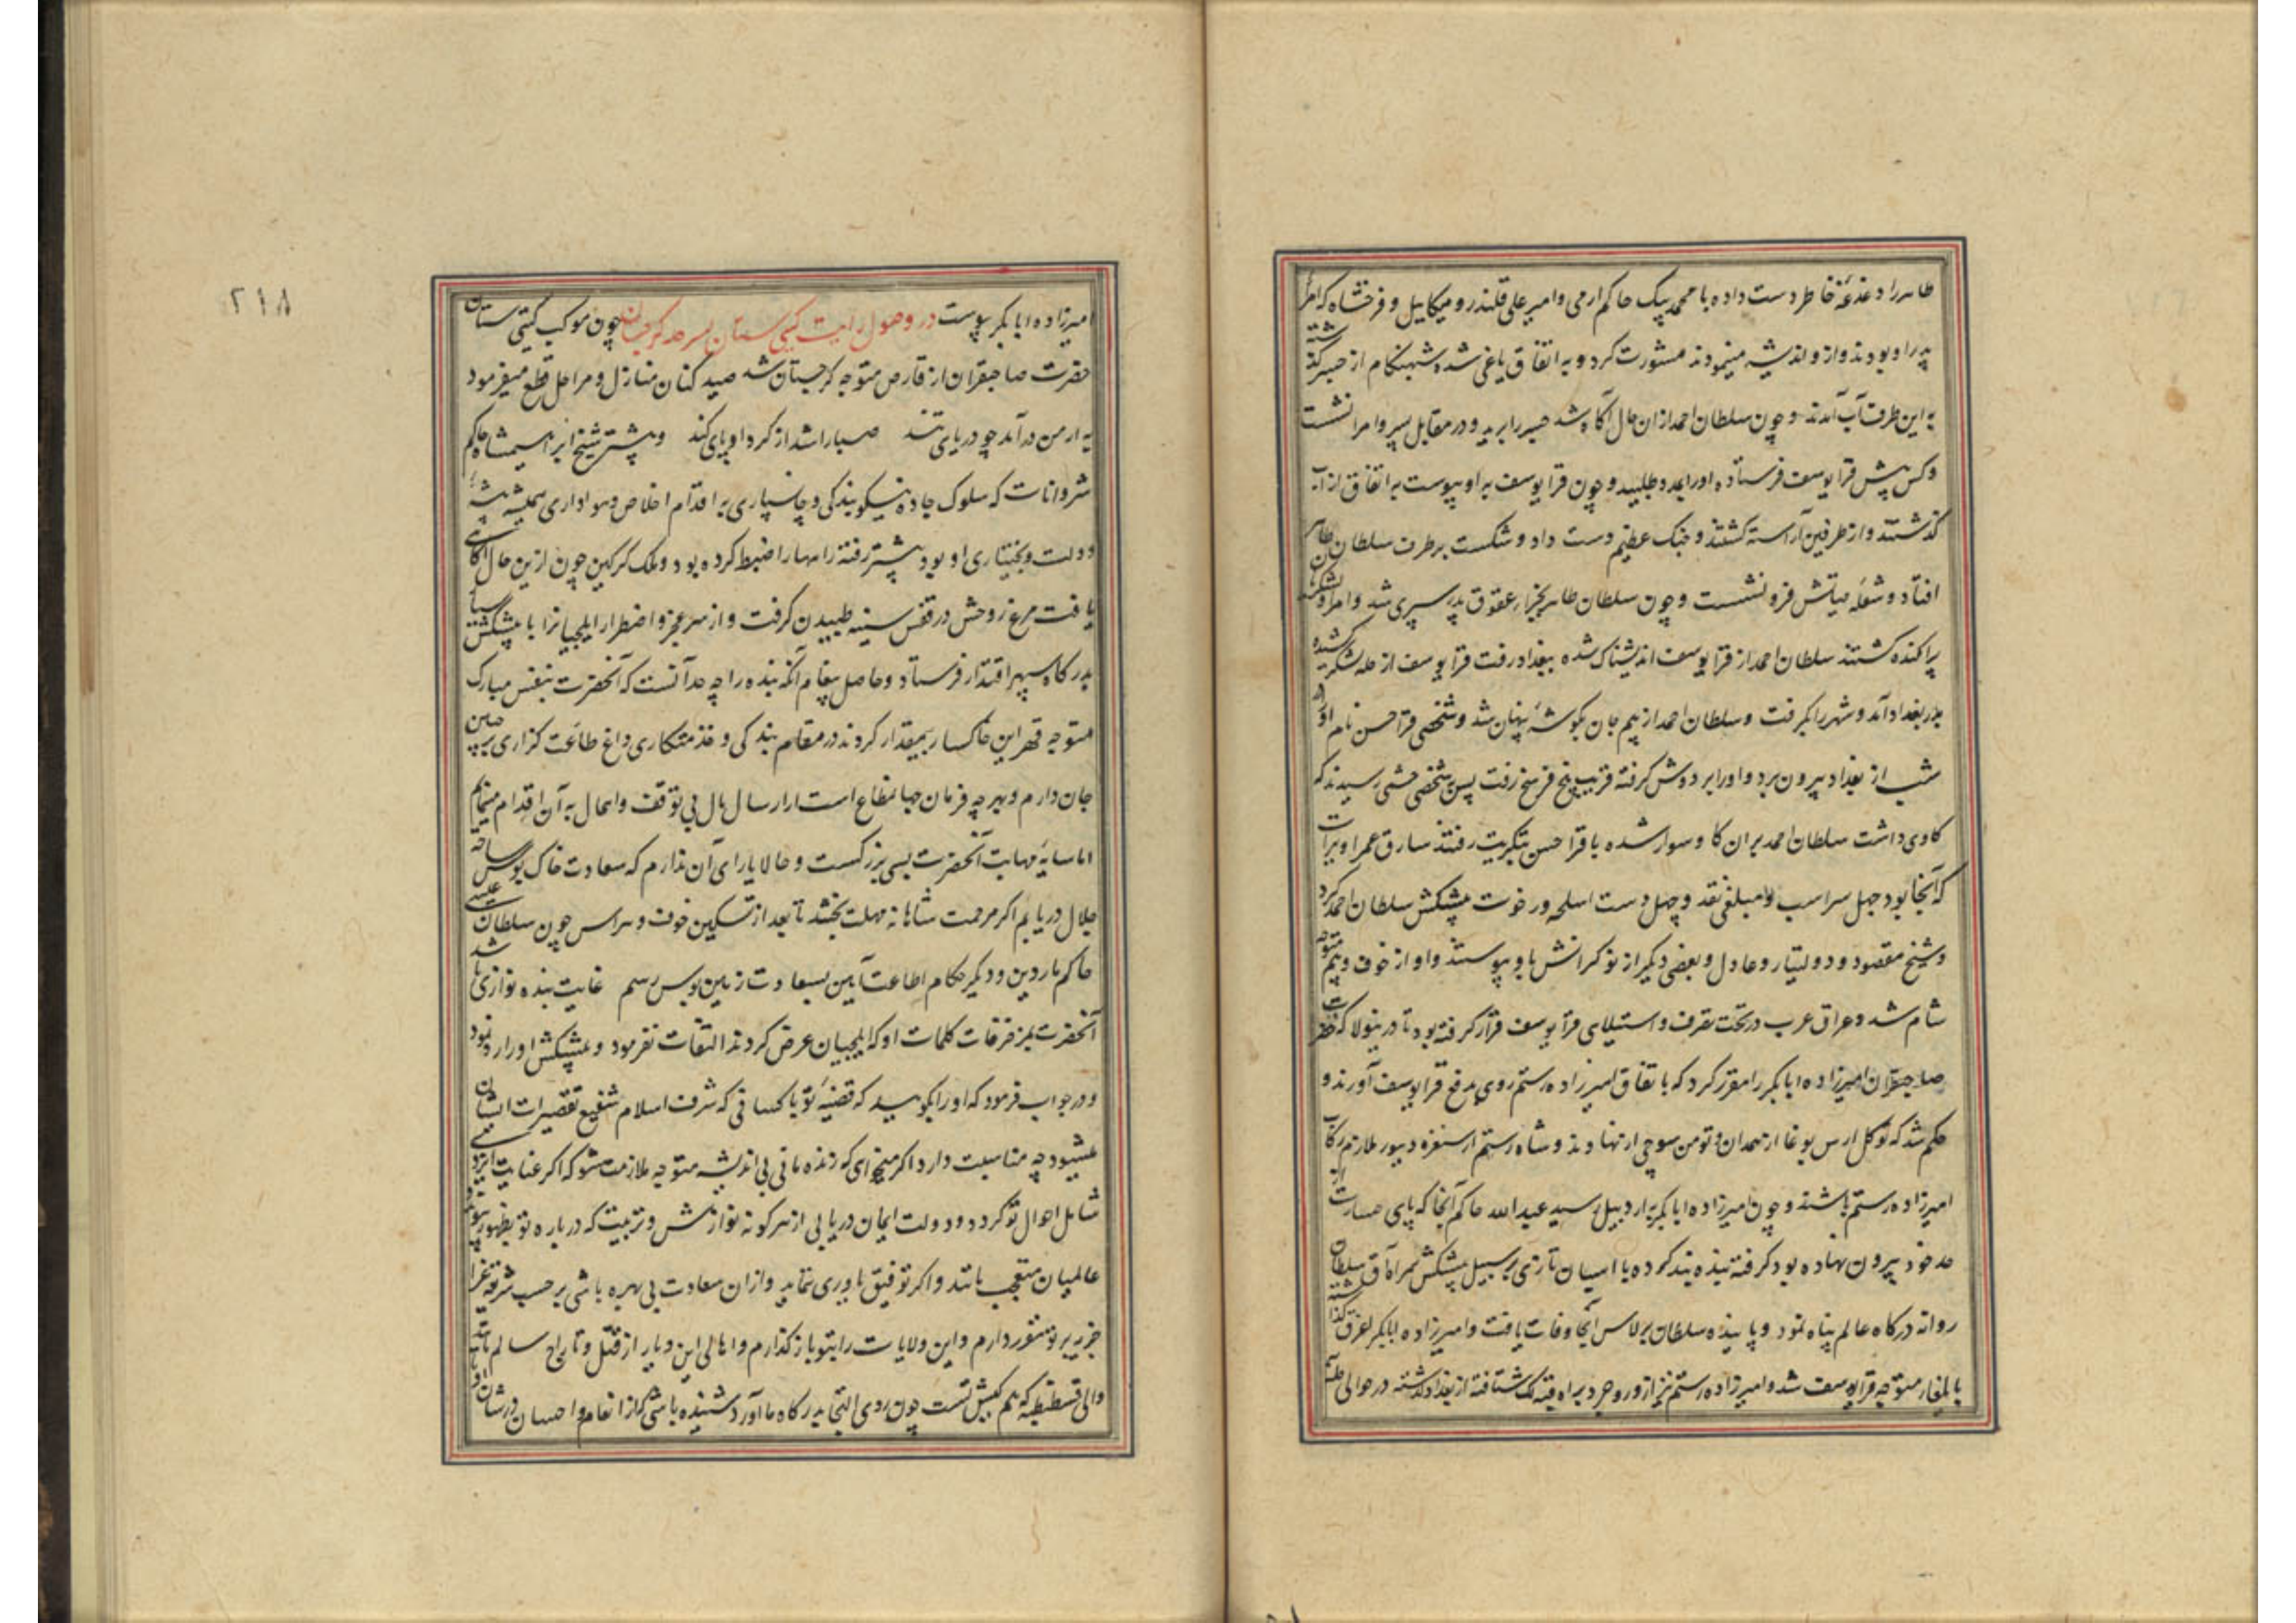 طاهر را دغدغهٔ خاطر دست داده با محمد بیک حاکم ارمی و امیر علی قلندر و میکاییل و فرخشاه که امرا
پدر او بودند و از و اندیشه مینمودند مشورت کرد و به اتفاق یاغی شده شبهنکام از جسر کذشته
به این طرف آب آمدند و چون سلطان احمد از ان حال آکاه شد جسر را برید و در مقابل پسر و امرا نشست
و کس پیش قرا یوسف فرستاده او را بمدد طلبید و چون قرا یوسف به او پیوست به اتفاق از آب
کذشتند و از طرفین آراسته کشتند و جنک عظیم دست داد و شکست بر طرف سلطان طاهر
افتاد و شعله حیاتش فرو نشست و چون سلطان طاهر بجزاء عقوق پدر سپری شد و امرا و لشکریان
پراکنده کشتند سلطان احمد از قرا یوسف اندیشناک شده ببغداد رفت قرا یوسف از حله لشکر کشیده
بدر بغداد آمد و شهر را بکرفت و سلطان احمد از بیم جان بکوشهٔ پنهان شد و شخصی قرا حسن نام او را
شب از بغداد بیرون برد و او را بر دوش کرفته قریب پنج فرسخ رفت پس بشخصی رسیدند که
کاوی داشت سلطان احمد بر ان کاو سوار شده با قرا حسن بتکریت رفتند سارق عمر اویرات
که آنجا بود چهل سر اسب و مبلغی نقد و چهل دست اسلحه و رخوت پیشکش سلطان احمد کرد
و شیخ مقصود و دولتیار و عادل و بعضی دیکر از نوکرانش باو پیوستند و او از خوف و بیم متوجه
شام شد و عراق عرب در تحت تصرف و استیلای قرا یوسف قرار کرفته بود تا درینولا که حضرت
صاحبقران امیرزاده ابابکر را مقرر کرد که باتفاق امیرزاده رستم روی بدفع قرا یوسف آورند و
حکم شد که توکل ارس بوغا از همدان و تومن سوجی از نهاوند و شاه رستم از سنقر و دینور ملازم رکاب
امیرزاده رستم باشند و چون امیرزاده ابابکر به اردبیل رسید عبد الله حاکم آنجا که پای جسارت از
حد خود بیرون نهاده بود کرفته بنده بند کرده با اسبان تازی بر سبیل پیشکش همراه آق سلطان
روانه درکاه عالم پناه نمود و پاینده سلطان برلاس آنجا وفات یافت و امیرزاده ابابکر بعراق کذشته
بایلغار متوجه قرا یوسف شد و امیرزاده رستم نیز از وروجرد براه شتافته از بغداد کذشته در حوالی حله
امیرزاده ابابکر پیوست در وصول رایت کیتی ستان بسرحد کرجستان چون موکب کیتی ستان
حضرت صاحبقران از قارص متوجه کرجستان شد صید کنان منازل و مراحل قطع میفرمود
به ارمن در آمد چو دریای تند صبا را شد از کرد او پای کند و پیشتر شیخ ابراهیم شاه حاکم
شروانات که سلوک جاده نیکو بندکی و جانسپاری به اقدام اخلاص و هواداری همیشه پیشهٔ
دولت و بختیاری او بود پیشتر رفته راهها را ضبط کرده بود و ملک کرکین چون ازین حال آکاهی
یافت مرغ روحش در قفس سینه طپیدن کرفت و از سر عجز و اضطرار ایلچیانرا با پیشکش بسیار
بدرکاه سپهر اقتدار فرستاد و حاصل پیغام آنکه بنده را چه حد آنست که آنحضرت بنفس مبارک
متوجه قهر این خاکسار بیمقدار کردند در مقام بندکی و خدمتکاری داغ طاعت کزاری بر جبین
جان دارم و بهر چه فرمان جهانمطاع است از ارسال مال بی توقف و اهمال به آن اقدام مینمایم
اما سایهٔ مهابت آنحضرت بسی بزرکست و حالا یارای آن ندارم که سعادت خاک بوس ساحه
جلال دریابم اکر مرحمت شاهانه مهلت بخشد تا بعد از تسکین خوف و هراس چون سلطان عیسی
حاکم ماردین و دیکر حکام اطاعت آیین بسعادت زمین بوس رسم غایت بنده نوازی باشد
آنحضرت بمزخرفات کلمات او که ایلچیان عرض کردند التفات نفرمود و پیشکش او را رد نمود
و در جواب فرمود که او را بکویید که قضیهٔ تو با کسانی که شرف اسلام شفیع تقصیرات ایشان
میشود چه مناسبت دارد اکر میخواهی که زنده مانی بی اندیشه متوجه ملازمت شو که اکر عنایت ایزدی
شامل احوال تو کردد و دولت ایمان دریابی از هر کونه نوازش و تربیت که در باره تو بظهور پیوندد
عالمیان متعجب مانند و اکر توفیق یاوری ننماید و ازان سعادت بی بهره باشی بر حسب شریعت غرا
جزیه بر تو مقرر دارم و این ولایات را بتو باز کذارم و اهالی این دیار از قتل و تاراج سالم مانند
والی قسطنطیه که هم کیش تست چون روی التجا بدرکاه ما آورد شنیده باشی که از انعام و احسان در شان او
٢١٨